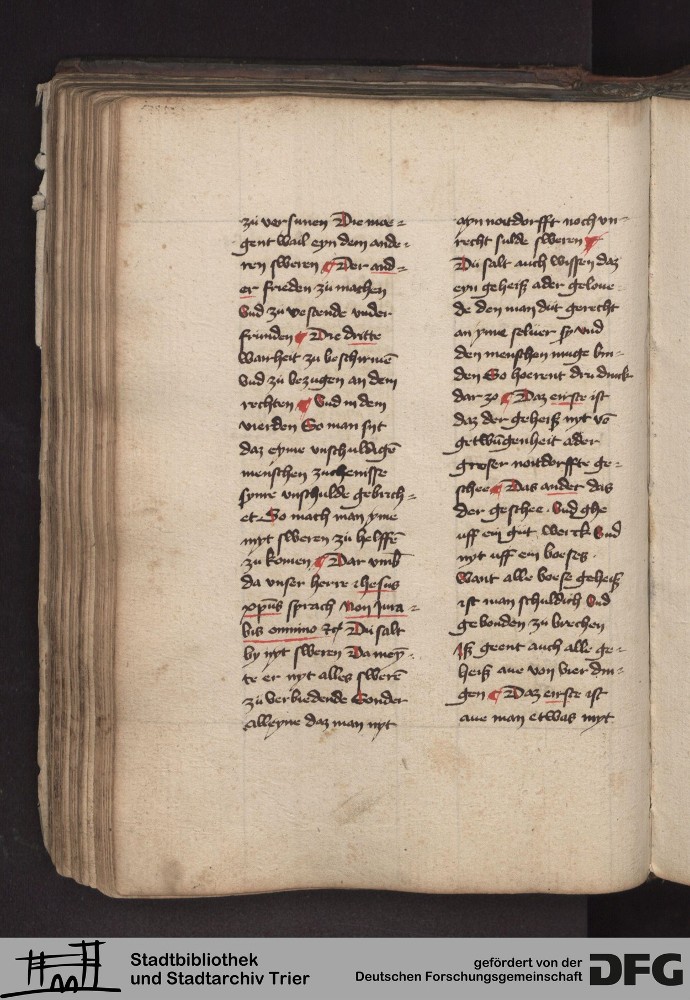 zu versunen Die moe-
gent wail eyn dem ande-
ren sweren ¶ Der and-
er frieden zu machen
Und zu vestende under
frunden ¶ Die dritte
warheit zu beschirmē
Und zu bezugen an dem
rechten ¶ Und in dem
vierden So man siit
daz eyme unschuldigē
menschen zuchenisse
syner unschulde gebrich-
et So mach man yme
myt sweren zu helffē
zu komen ¶ Dar umb
da unser herre ihesus
xp̄us sprach Non iura-
bis omnino &c Du salt
by nyt sweren Da mey-
te er nyt alles swerē
zu verbiedende Sonder
alleyne daz man nyt
ayn noitdorfft noch un-
recht sulde sweren ¶
Du salt auch wissen daz
eyn geheiß ader geloue-
de den man dut gerecht
an yme seluer sy und
den menschen muge bin-
den So hoerent dru dinck
dar zo ¶ Daz eirste ist
daz der geheiß nyt vō
getwūgenheit ader
groser noitdorffte ge-
schee ¶ Das ander das
der geschee Und ghe
uff ein gut werck Und
nyt uff ein boeses
Want alle boese geheiß
ist man schuldich Und
gebonden zu brechen
Iß geent auch alle ge-
heiß aue von vier din-
gen ¶ Daz eirste ist
aue man etwas myt
Stadtbibliothek
und Stadtarchiv Trier
gefördert von der
Deutschen Forschungsgemeinschaft
DFG